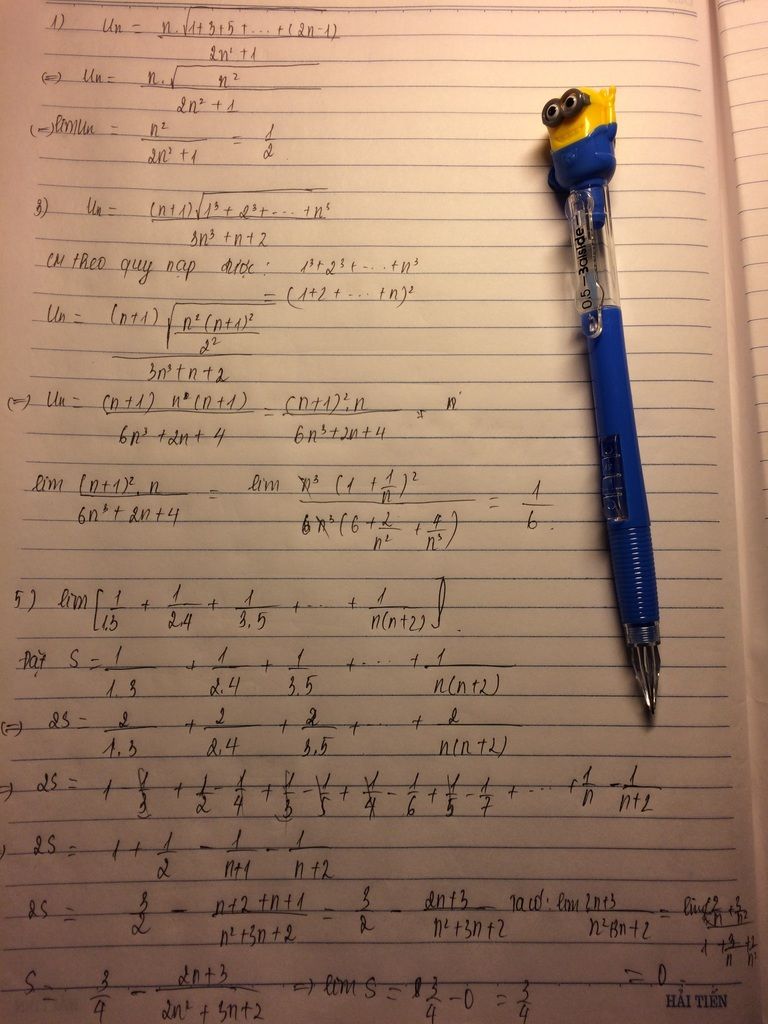 1) Un = n.√(1+3+5+...+(2n-1)) / 2n²+1
(=) Un = n.√(n²) / 2n²+1
(=) lim Un = n² / 2n²+1 = 1/2
3) Un = (n+1)√(1³+2³+...+n³) / 3n³+n+2
CM theo quy nạp được: 1³+2³+...+n³
= (1+2+...+n)²
Un = (n+1)√(n²(n+1)²/2²) / 3n³+n+2
(=) Un = (n+1) n (n+1) / 6n³+2n+4 = (n+1)².n / 6n³+2n+4
lim (n+1)².n / 6n³+2n+4 = lim n³(1+1/n)² / n³(6+2/n²+4/n³) = 1/6
5) lim[1/1.3 + 1/2.4 + 1/3.5 + ... + 1/n(n+2)]
Đặt S = 1/1.3 + 1/2.4 + 1/3.5 + ... + 1/n(n+2)
(=) 2S = 2/1.3 + 2/2.4 + 2/3.5 + ... + 2/n(n+2)
=) 2S = 1 - 1/3 + 1/2 - 1/4 + 1/3 - 1/5 + 1/4 - 1/6 + 1/5 - 1/7 + ... + 1/n - 1/n+2
2S = 1 + 1/2 - 1/n+1 - 1/n+2
2S = 3/2 - n+2+n+1 / n²+3n+2 = 3/2 - 2n+3 / n²+3n+2 Ta có: lim 2n+3 / n²+3n+2 = lim 2/n + 3/n² / 1 + 3/n + 2/n² = 0
S = 3/4 - 2n+3 / 2n²+3n+2 => lim S = 3/4 - 0 = 3/4
HẢI TIẾN
0.5